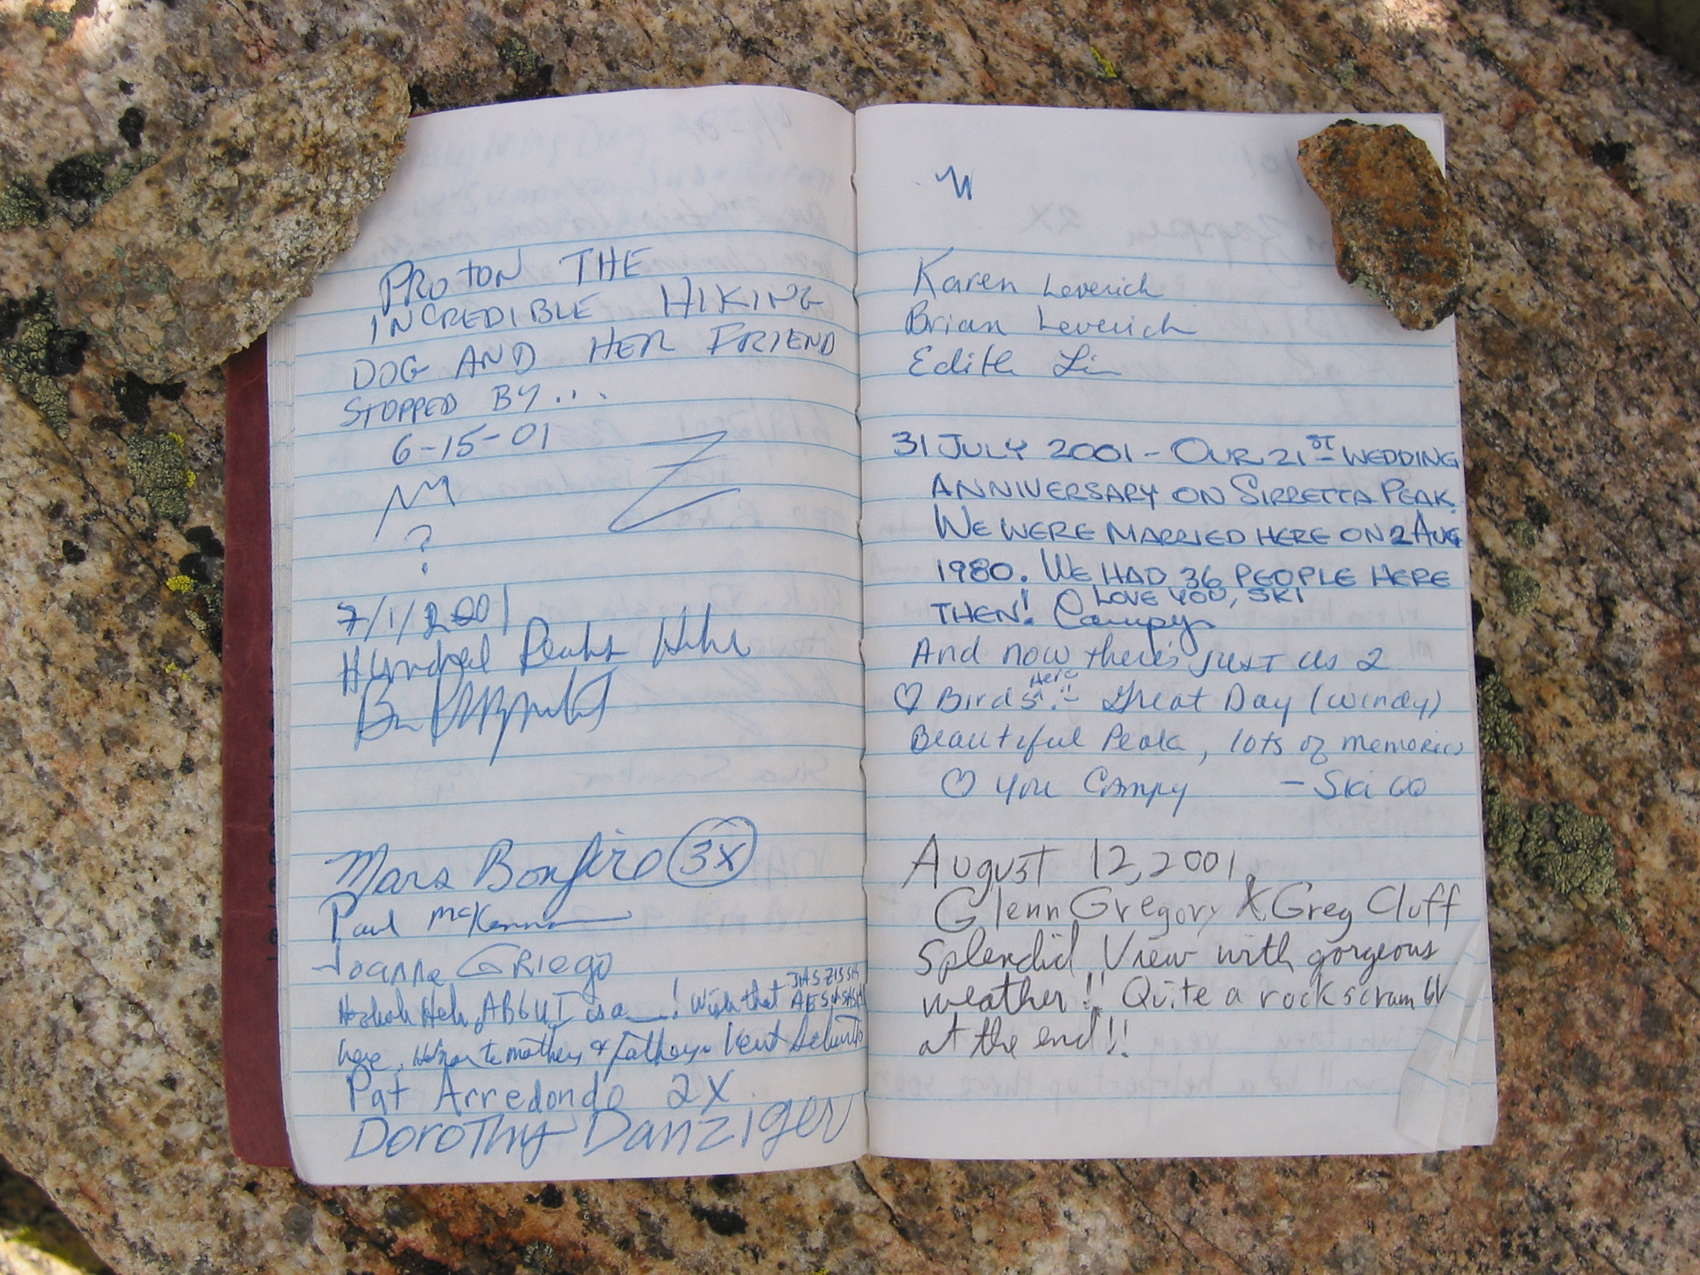 PROTON THE
INCREDIBLE HIKING
DOG AND HER FRIEND
STOPPED BY...
6-15-01
?
7/1/2001
Hundred Peaks Hike
Mars Bonfire 3X
Paul McKenna
Joanne Griego
is a __! Wish that
here. to mother & father. Kent
Pat Arredondo 2X
Dorothy Danziger
Karen Leverich
Brian Leverich
Edith Lin
31 JULY 2001 - OUR 21ST WEDDING
ANNIVERSARY ON SIRRETTA PEAK.
WE WERE MARRIED HERE ON 2 AUG
1980. WE HAD 36 PEOPLE HERE
THEN! I LOVE YOU, SKI
Campy
And now there's just us 2
♡ Birds Here!! Great Day (windy)
Beautiful Peak, lots of memories
♡ you Campy - Ski
August 12, 2001.
Glenn Gregory & Greg Cluff
Splendid View with gorgeous
weather!! Quite a rock scramb
at the end!!